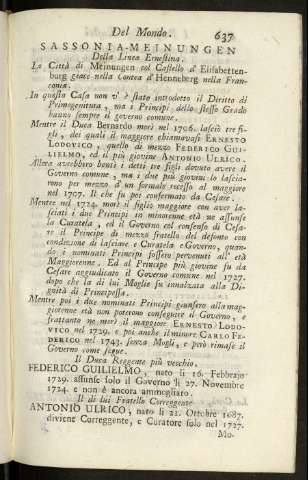 Del Mondo. 637
SASSONIA-MEINUNGEN
Della Linea Ernestina.
La Città di Meinungen col Castello d' Elisabetten-
burg giace nella Contea d' Henneberg nella Fran-
conia.
In questa Casa non v' è stato introdotto il Diritto di
Primogenitura, ma i Principi dello stesso Grado
hanno sempre il governo comune.
Mentre il Duca Bernardo morì nel 1706. lasciò tre fi-
gli, dei quali il maggiore chiamavasi ERNESTO
LODOVICO, quello di mezzo FEDERICO GUI-
LIELMO, ed il più giovine ANTONIO ULRICO.
Allora averebbero bensì i detti tre figli dovuto avere il
Governo comune, ma i due più giovini lo lascia-
rono per mezzo d' un formale recesso al maggiore
nel 1707. Il che fu poi confermato da Cesare.
Mentre nel 1724. morì il figlio maggiore con aver la-
sciati i due Principi in minorenne età ne assunse
la Curatela, ed il Governo col consenso di Cesa-
re il Principe di mezzo fratello del defonto con
condizione di lasciare e Curatela e Governo, quan-
do i nominati Principi fossero pervenuti all' età
Maggiorenne. Ed al Principe più giovine fu da
Cesare aggiudicato il Governo comune nel 1727.
dopo che la di lui Moglie fu innalzata alla Di-
gnità di Principessa.
Mentre poi i due nominati Principi giunsero alla mag-
giorenne età non poterono conseguire il Governo, e
frattanto ne morì il maggiore ERNESTO LODO-
VICO nel 1729. e poi anche il minore CARLO FE-
DERICO nel 1743. senza Mogli, e però rimase il
Governo come segue.
Il Duca Reggente più vecchio.
FEDERICO GUILIELMO, nato li 16. Febbrajo
1729. assunse solo il Governo li 27. Novembre
1724. e non è ancora ammogliato.
Il di lui Fratello Correggente
ANTONIO ULRICO, nato li 22. Ottobre 1687.
diviene Correggente, e Curatore solo nel 1727.
Mo.